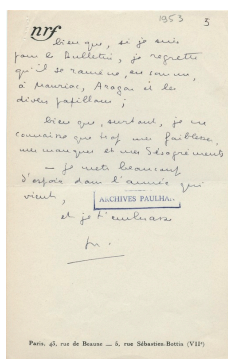 1953
3
nrf
bien que, si je suis
pour le Bulletin, je regrette
qu'il se ramène, en somme,
à Mauriac, Aragon et les
divers papillons ;
bien que, surtout, je me
connaisse que trop mes faiblesses,
mes manques et mes désagréments
— je mets beaucoup
d'espoir dans l'année qui
vient,
ARCHIVES PAULHAN
et je t'embrasse
Paris, 43, rue de Beaune — 5, rue Sébastien-Bottin (VIIe)